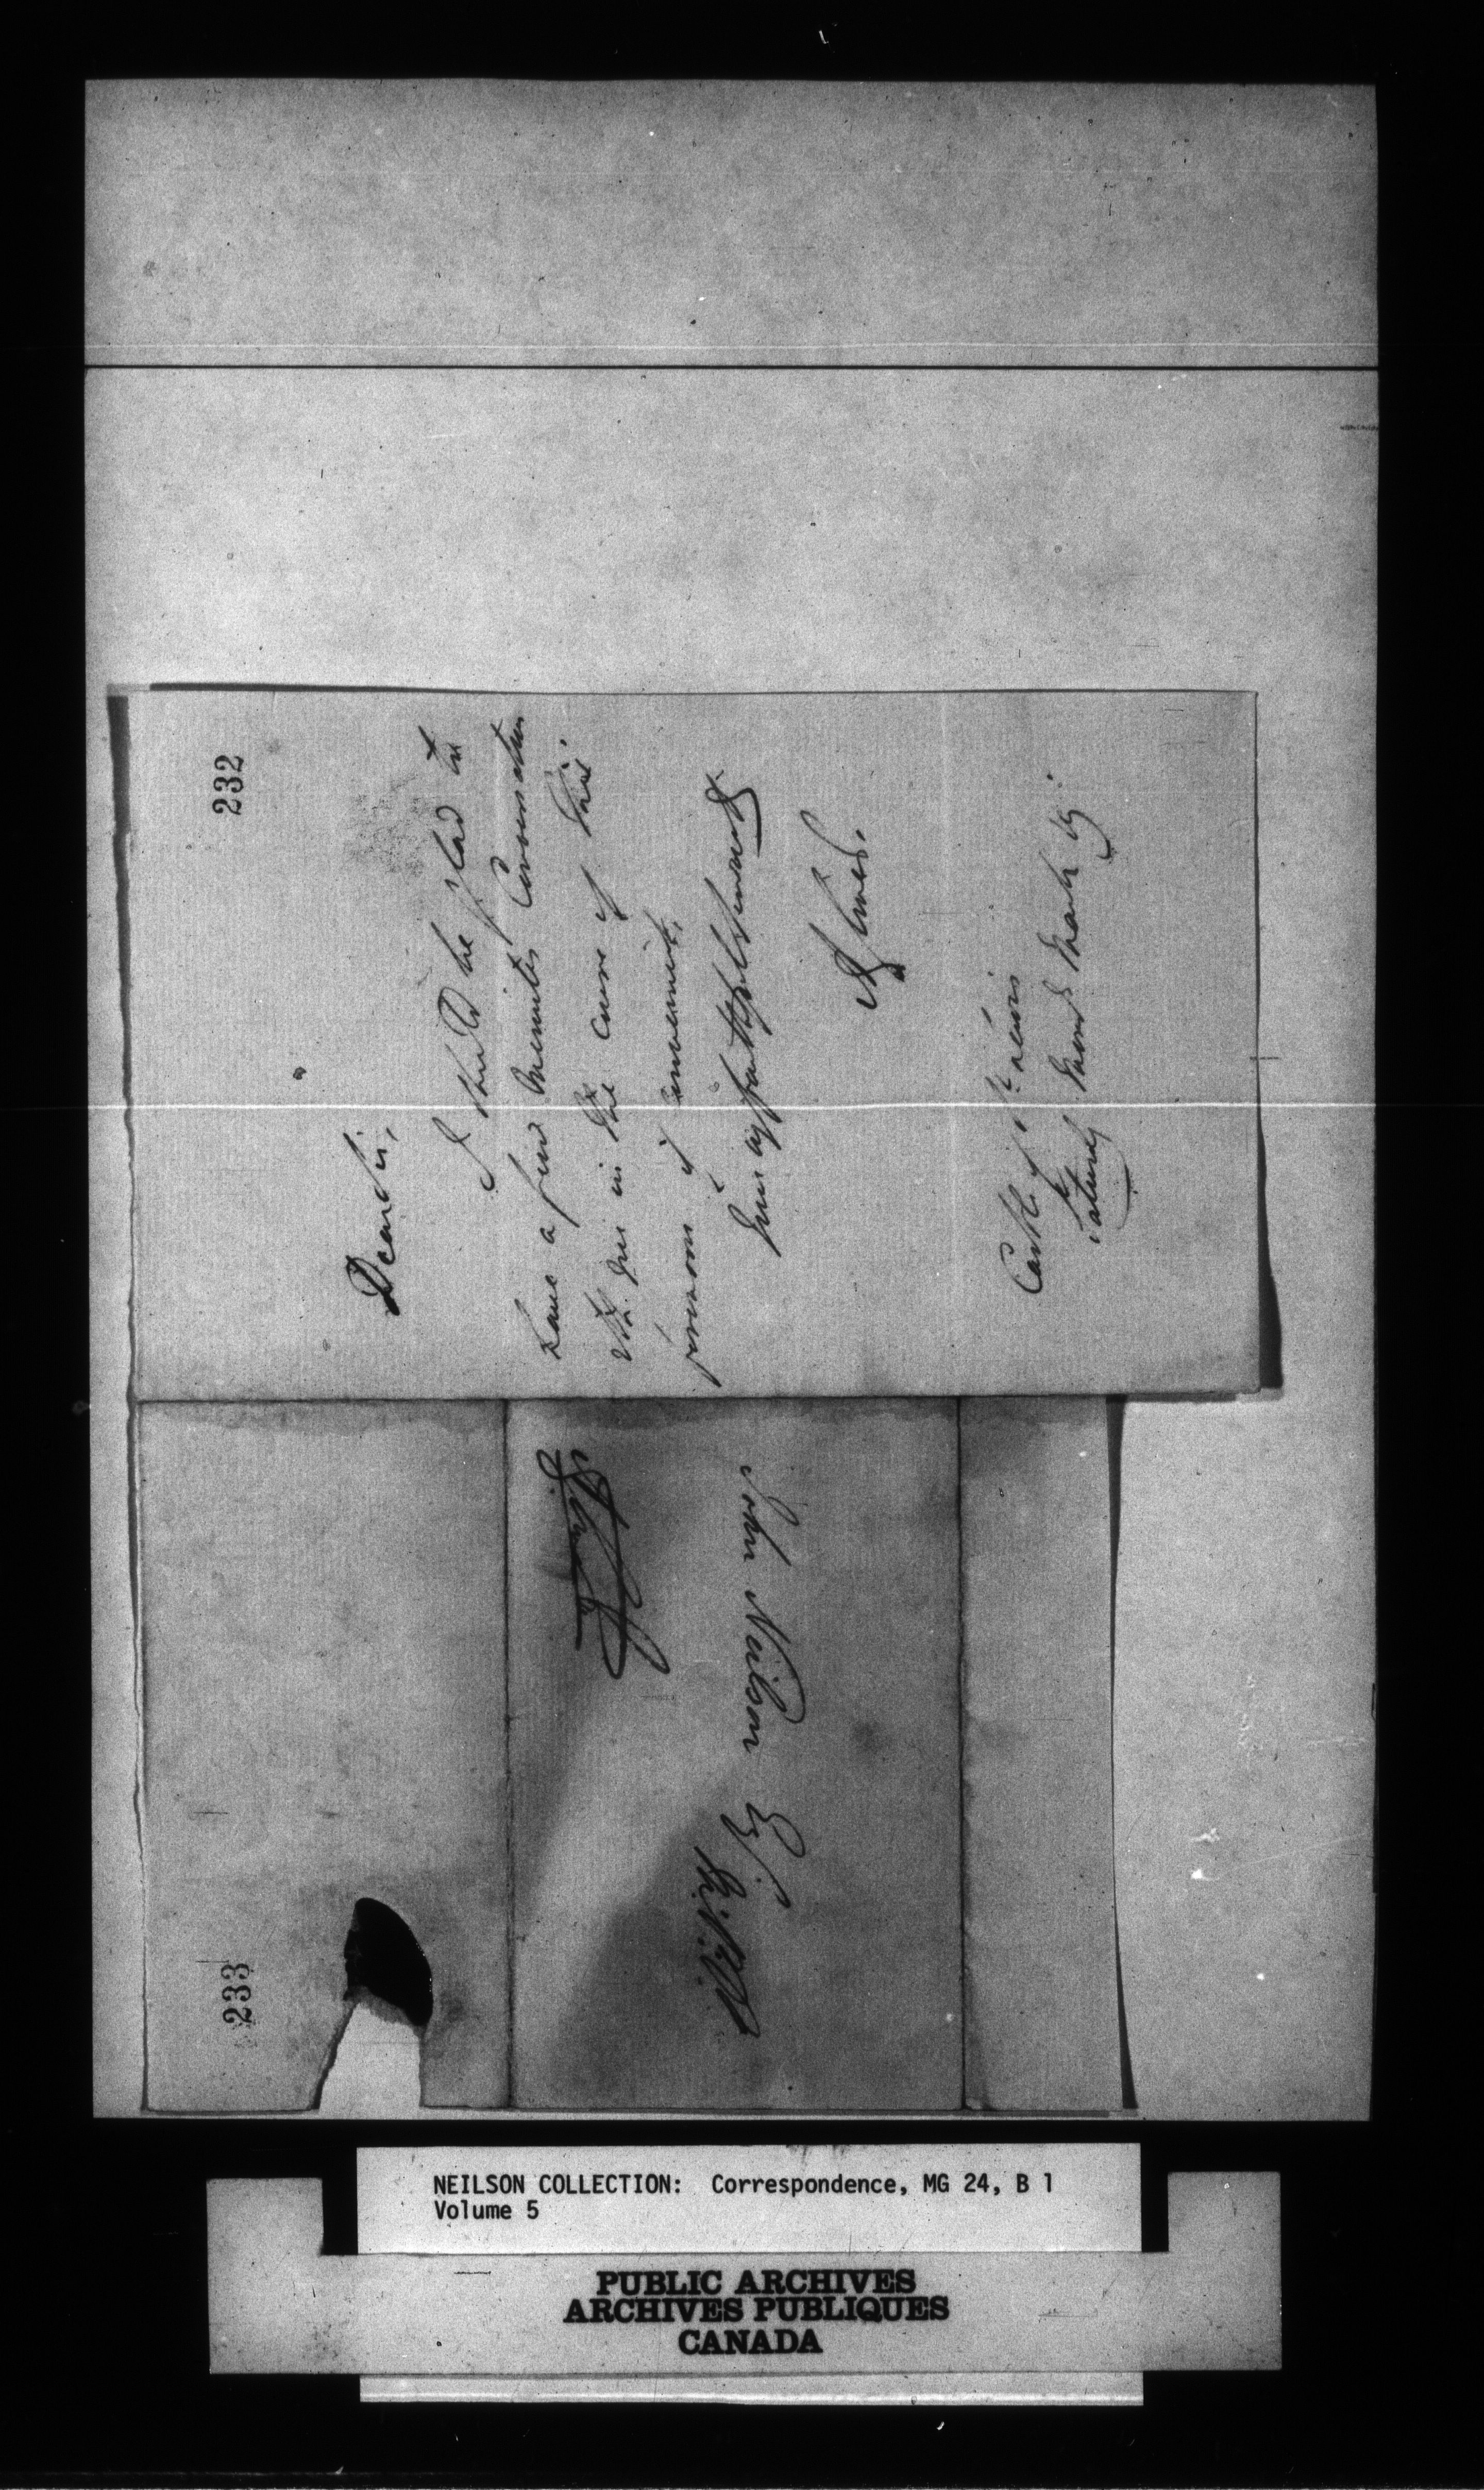 232
Dear Sir,
I should be glad to
have a few minutes Conversation
with you in the course of this
forenoon if convenient,
Your faithful servant
A Cochran
Castle of St. Lewis
Saturday
John Neilson Esq
233
NEILSON COLLECTION: Correspondence, MG 24, B 1
Volume 5
PUBLIC ARCHIVES
ARCHIVES PUBLIQUES
CANADA